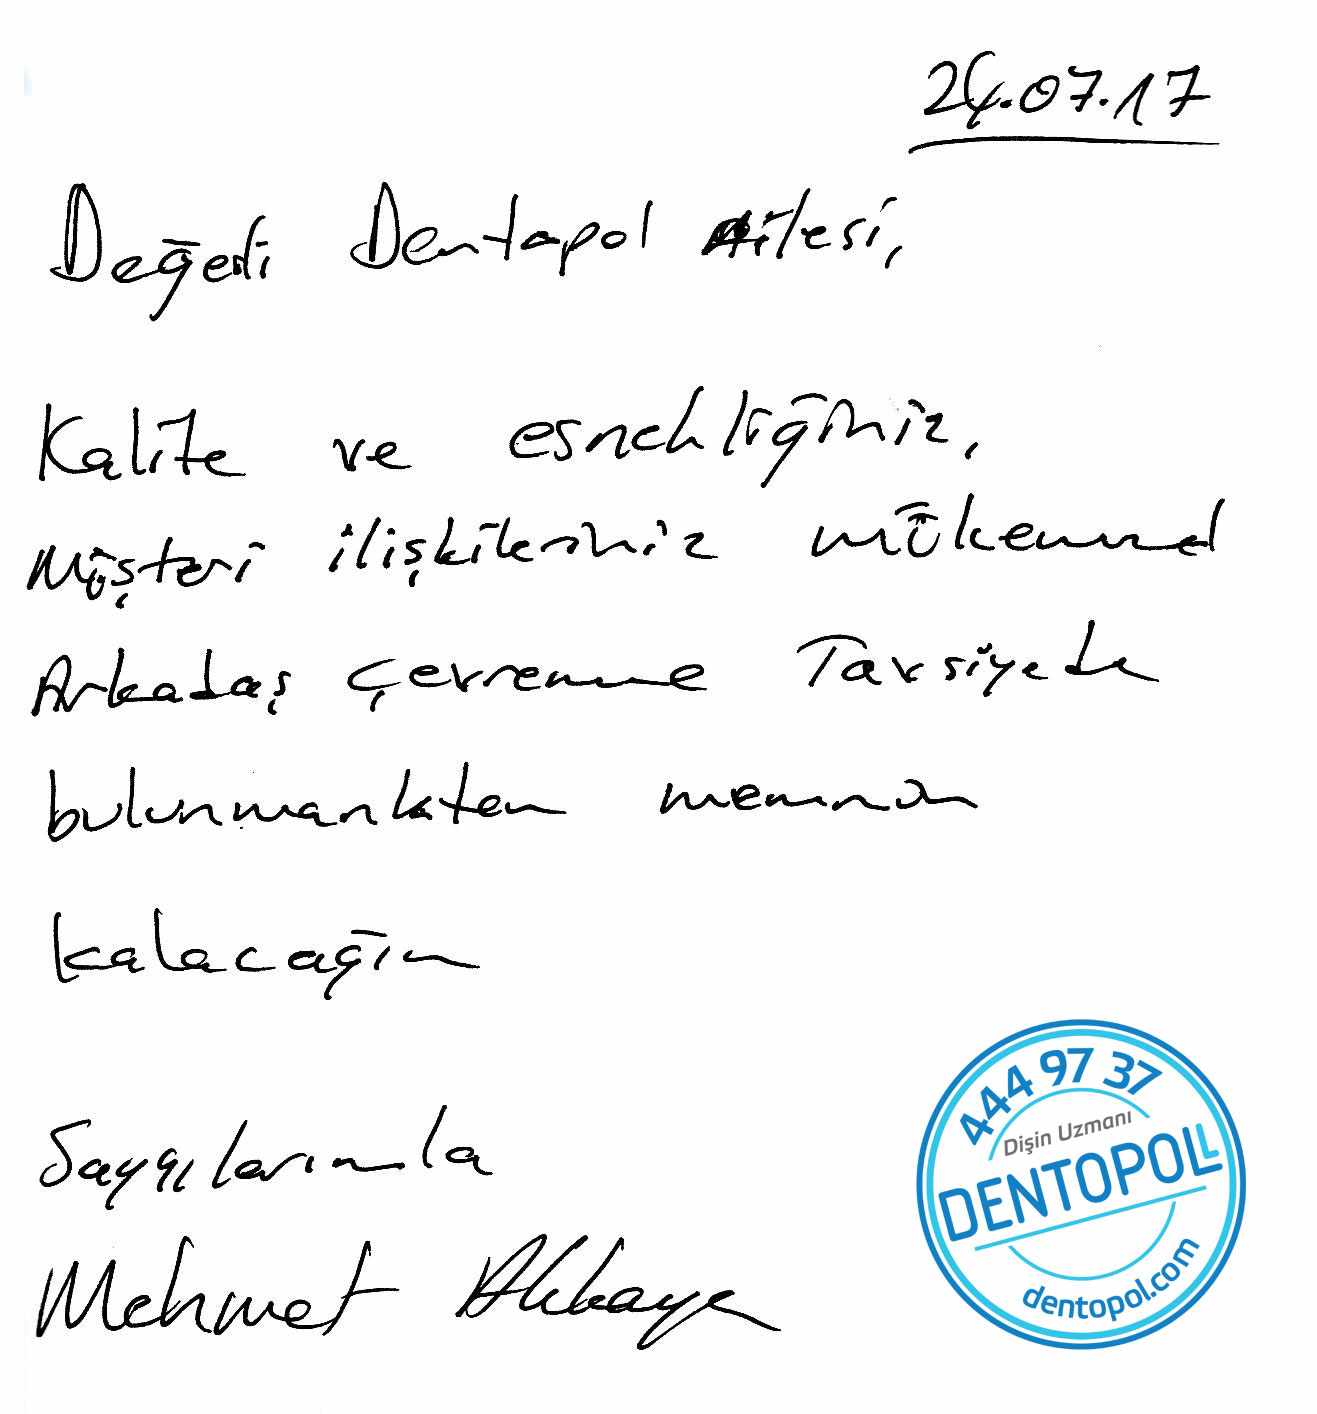 24.07.17
Değerli Dentapol Ailesi,
Kalite ve esnekliğiniz,
Müşteri ilişkileriniz mükemmel
Arkadaş çevremme Tavsiyede
bulunmankten memnun
kalacağım
Saygılarımla
Mehmet Akkaya
444 97 37
Dişin Uzmanı
DENTOPOL
dentopol.com